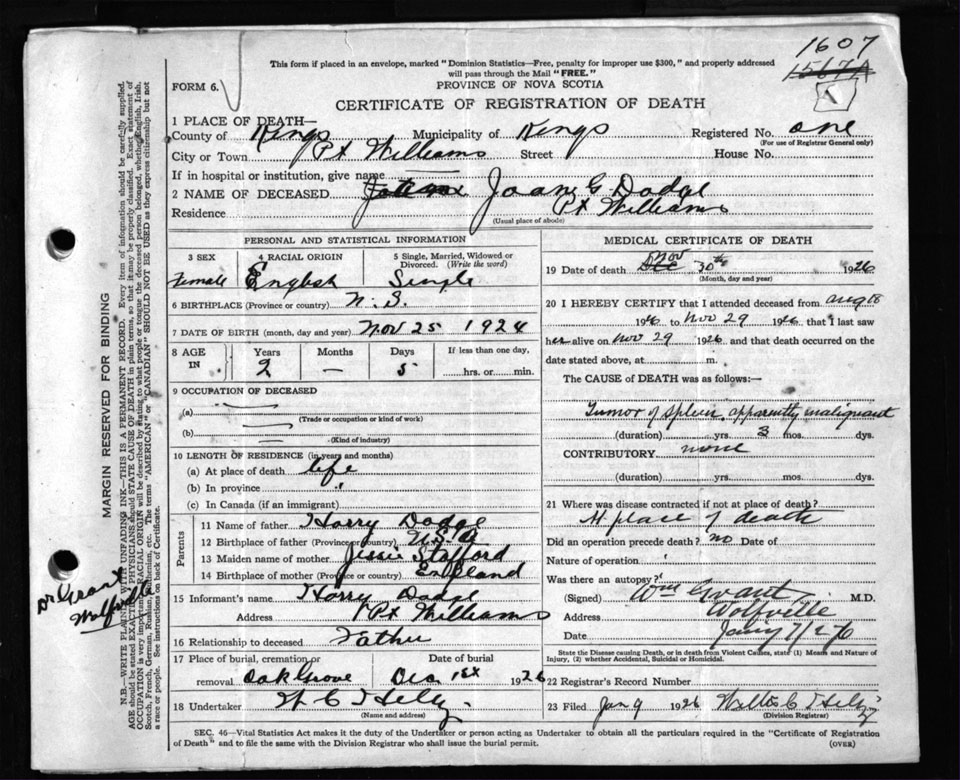 1607
1567A
This form if placed in an envelope, marked "Dominion Statistics—Free, penalty for improper use $300," and properly addressed
will pass through the Mail "FREE."
FORM 6.
PROVINCE OF NOVA SCOTIA
CERTIFICATE OF REGISTRATION OF DEATH
1 PLACE OF DEATH—
County of Kings Municipality of Kings Registered No. one
(For use of Registrar General only)
City or Town Pt Williams Street House No.
If in hospital or institution, give name
2 NAME OF DECEASED Joan G Dodge
Residence Pt Williams
(Usual place of abode)
PERSONAL AND STATISTICAL INFORMATION
3 SEX 4 RACIAL ORIGIN 5 Single, Married, Widowed or
Divorced. (Write the word)
Female English Single
6 BIRTHPLACE (Province or country) N. S.
7 DATE OF BIRTH (month, day and year) Nov 25 1924
8 AGE IN Years Months Days If less than one day,
2 — 5 hrs. or min.
9 OCCUPATION OF DECEASED
(a)
(Trade or occupation or kind of work)
(b)
(Kind of industry)
10 LENGTH OF RESIDENCE (in years and months)
(a) At place of death life
(b) In province "
(c) In Canada (if an immigrant)
Parents
11 Name of father Harry Dodge
12 Birthplace of father (Province or country) U.S.A
13 Maiden name of mother Jessie Stafford
14 Birthplace of mother (Province or country) England
15 Informant's name Harry Dodge
Address Pt Williams
16 Relationship to deceased Father
17 Place of burial, cremation or Date of burial
removal Oak Grove Dec 1st 1926
18 Undertaker
(Name and address)
MEDICAL CERTIFICATE OF DEATH
Nov
19 Date of death Dec 30th 1926
(Month, day and year)
20 I HEREBY CERTIFY that I attended deceased from Aug 18
1926 to Nov 29 1926, that I last saw
her alive on Nov 29 1926 and that death occurred on the
date stated above, at m.
The CAUSE OF DEATH was as follows:—
Tumor of Spleen, apparently malignant
(duration) yrs. 3 mos. dys.
CONTRIBUTORY none
(duration) yrs. mos. dys.
21 Where was disease contracted if not at place of death?
At place of death
Did an operation precede death? no Date of
Nature of operation
Was there an autopsy?
(Signed) Wm Grant M.D.
Address Wolfville
Date
State the Disease causing Death, or in death from Violent Causes, state (1) Means and Nature of
Injury, (2) whether Accidental, Suicidal or Homicidal.
22 Registrar's Record Number
23 Filed Jan 9 1926
(Division Registrar)
SEC. 46—Vital Statistics Act makes it the duty of the Undertaker or person acting as Undertaker to obtain all the particulars required in the "Certificate of Registration
of Death" and to file the same with the Division Registrar who shall issue the burial permit. (OVER)
MARGIN RESERVED FOR BINDING
N.B.—WRITE PLAINLY WITH UNFADING INK—THIS IS A PERMANENT RECORD. Every item of information should be carefully supplied.
AGE should be stated EXACTLY. PHYSICIANS should STATE CAUSE OF DEATH in plain terms, so that it may be properly classified. Exact statement of
OCCUPATION is very important. RACIAL ORIGIN will be described by stating to what people or tongue the deceased person belonged, whether English, Irish,
Scotch, French, German, Russian, Ruthenian, etc. The terms "AMERICAN" or "CANADIAN" SHOULD NOT BE USED as they express citizenship but not
a race or people. See instructions on back of Certificate.
Dr Grant
Wolfville